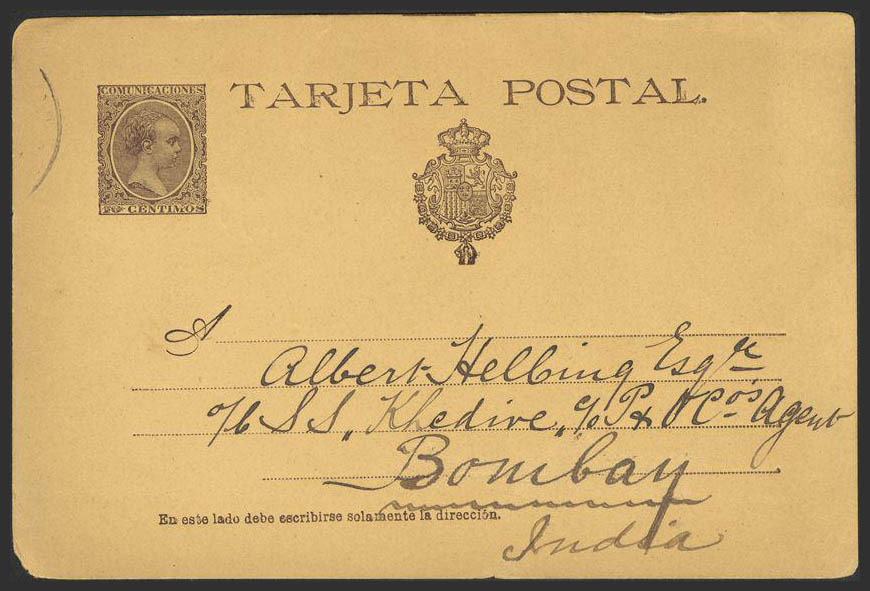 COMUNICACIONES
10 CENTIMOS
TARJETA POSTAL.
A
Albert Helbing Esqre
o/b SS „Khedive„ c/o P & O Co's Agent
Bombay
India
En este lado debe escribirse solamente la dirección.